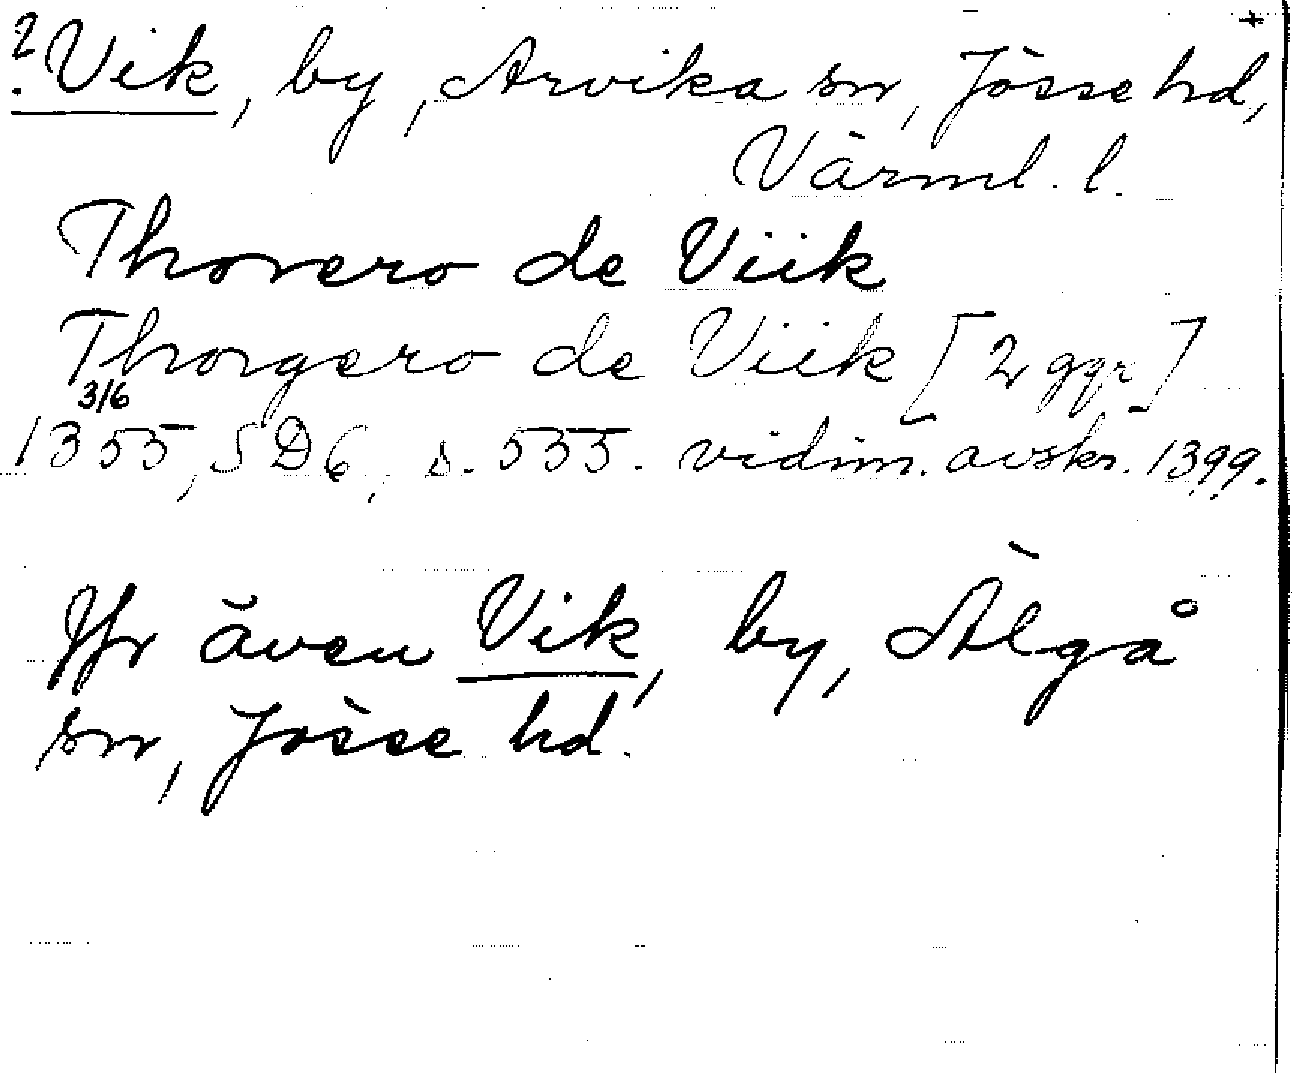 ? Vik, by, Arvika sn, Jösse hd, +
Värml. l.
Thorero de Viik
Thorgero de Viik [2 ggr]
3/6
1355, SD 6, s. 535. vidim. avskr. 1399.
Jfr även Vik, by, Älgå
sn, Jösse hd.